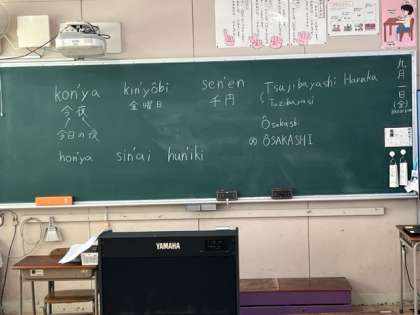 kon'ya
今夜
今日の夜
hon'ya
kin'yôbi
金曜日
sin'ai
hun'iki
sen'en
千円
Tsujibayashi Haruka
(Tuzibayasi
Ôsakashi
ÔSAKASHI
九月一日(金)
YAMAHA